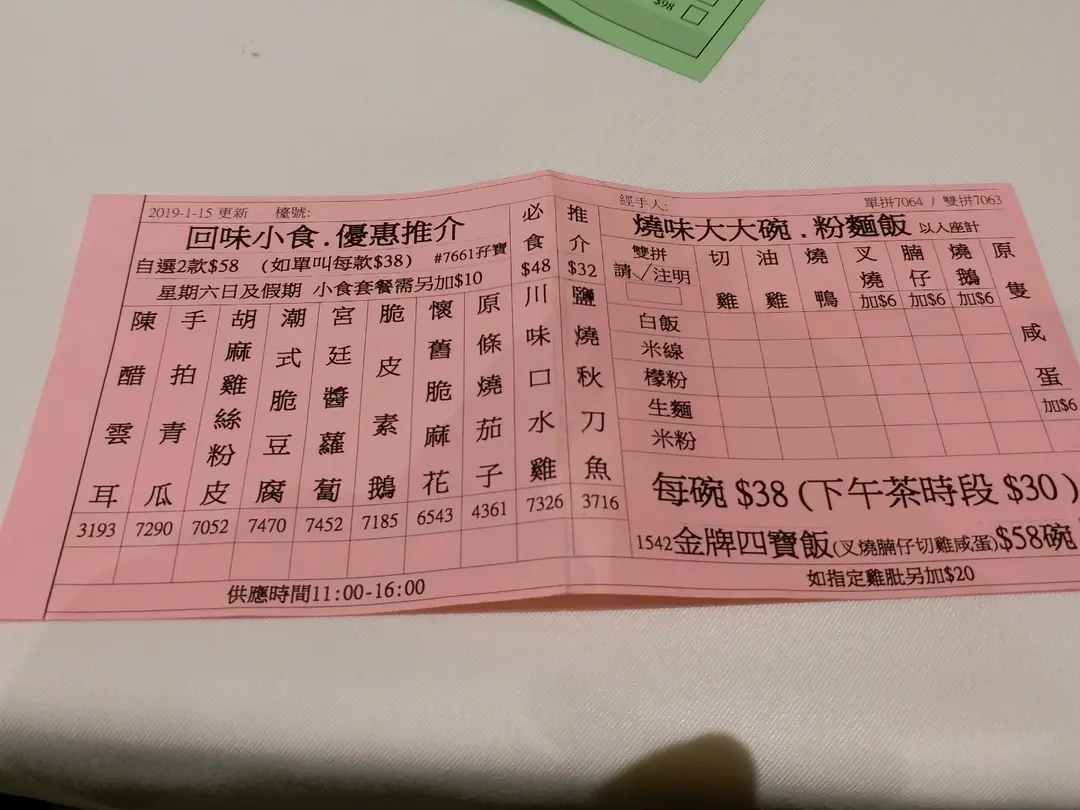 $98
2019-1-15 更新 檯號:
回味小食.優惠推介
自選2款$58 (如單叫每款$38) #7661孖寶
星期六日及假期 小食套餐需另加$10
陳醋雲耳
3193
手拍青瓜
7290
胡麻雞絲粉皮
7052
潮式脆豆腐
7470
宮廷醬蘿蔔
7452
脆皮素鵝
7185
懷舊脆麻花
6543
原條燒茄子
4361
必食$48
川味口水雞
7326
推介$32
鹽燒秋刀魚
3716
供應時間11:00-16:00
經手人: 單拼7064 / 雙拼7063
燒味大大碗.粉麵飯 以人座計
雙拼
請✓注明
切雞
油雞
燒鴨
叉燒
加$6
腩仔
加$6
燒鵝
加$6
原隻咸蛋
加$6
白飯
米線
檬粉
生麵
米粉
每碗 $38 (下午茶時段 $30)
1542金牌四寶飯(叉燒腩仔切雞咸蛋)$58碗
如指定雞肶另加$20